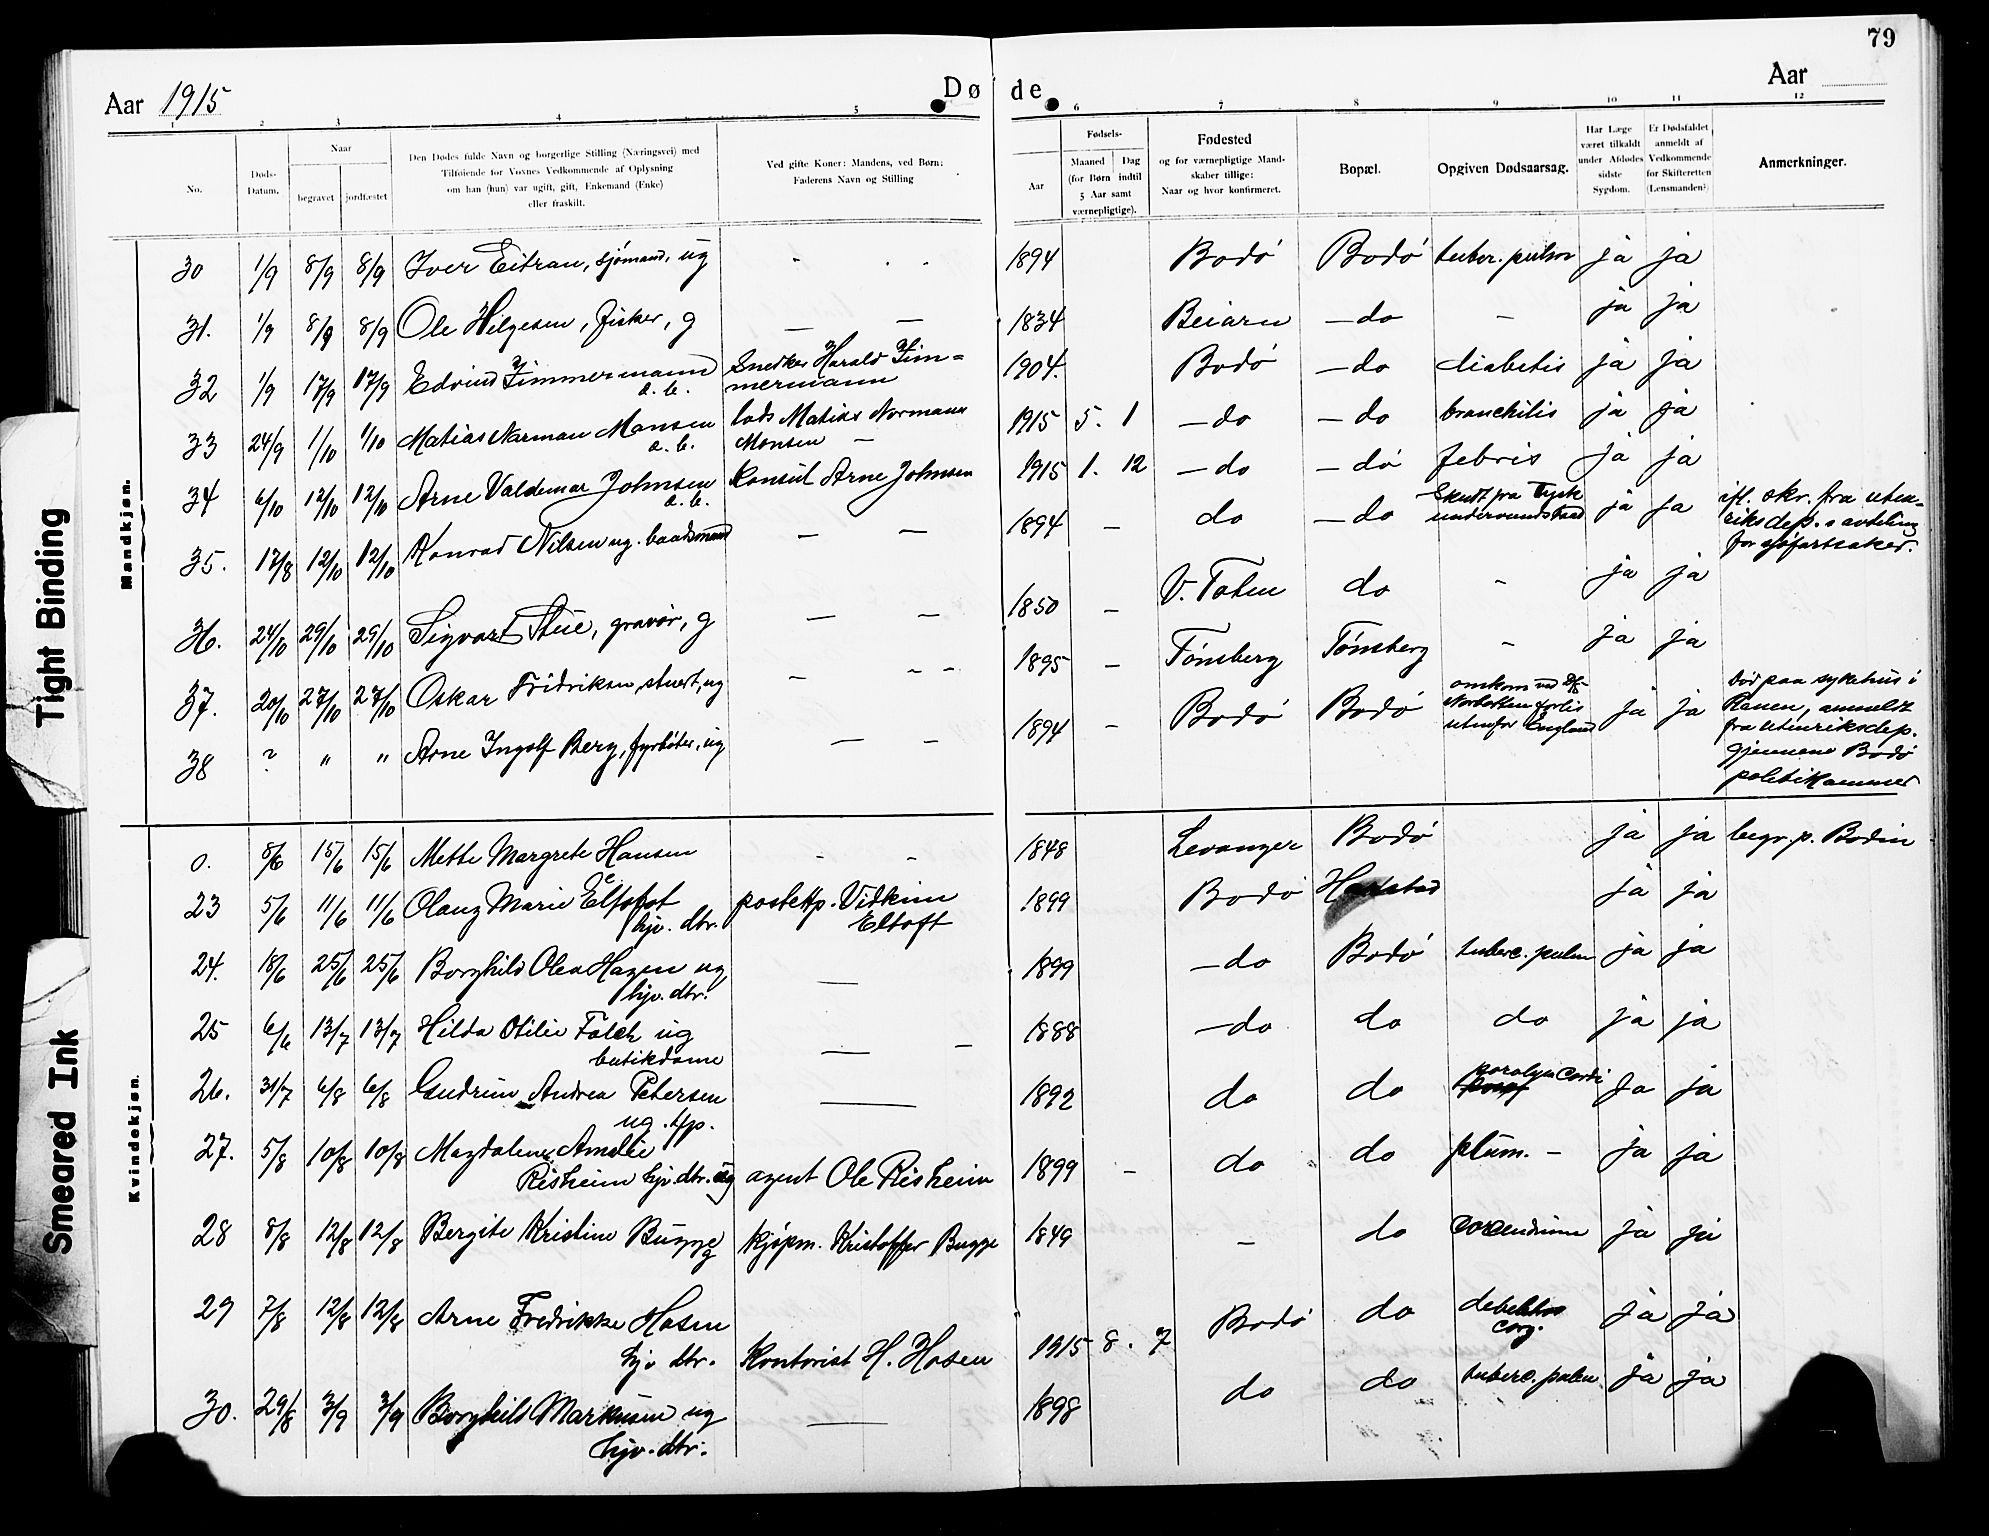 79
Aar 1915 Døde Aar
1 2 3 4 5 6 7 8 9 10 11 12
No.
Døds-
Datum.
Naar
begravet jordfæstet
Den Dødes fulde Navn og borgerlige Stilling (Næringsvei) med
Tilføiende for Voxnes Vedkommende af Oplysning
om han (hun) var ugift, gift, Enkemand (Enke)
eller fraskilt.
Ved gifte Koner: Mandens, ved Børn:
Faderens Navn og Stilling
Fødsels-
Aar
Maaned Dag
(for Børn indtil
5 Aar samt
værnepligtige).
Fødested
og for værnepligtige Mand-
skaber tillige:
Naar og hvor konfirmeret.
Bopæl.
Opgiven Dødsaarsag.
Har Læge
været tilkaldt
under Afdødes
sidste
Sygdom.
Er Dødsfaldet
anmeldt af
Vedkommende
for Skifteretten
(Lensmanden?)
Anmerkninger.
Mandkjøn.
30 1/9 8/9 8/9 Iver Eitran, sjømand, ug - - - 1894 Bodø Bodø tuber. pulm ja ja
31. 1/9 8/9 8/9 Ole Helgesen, fisker, g — — 1834 Beiarn — do - ja ja
32 1/9 17/9 17/9 Edvind Zimmermann Snedker Harald Zim= 1904. Bodø — do diabetis ja ja
e. b. mermann
33 24/9 1/10 1/10 Matias Norman Monsen lods Matias Normann 1915 5. 1 — do — do bronchitis ja ja
e. b. Monsen —
34 6/10 12/10 12/10 Arne Valdemar Johnsen Konsul Arne Johnsen 1915 1. 12 — do — do febris ja ja
e. b.
35. 17/8 12/10 12/10 Konrad Nilsen ug. baadsmand — — 1894 - do — do Skudt fra Tysk ja ja ifl. skr. fra uten=
undervandsbaad riksdep.s avdeling
for sjøfartsaker.
36. 24/10 29/10 29/10 Sigvart Stue, gravør, g — — 1850 - V. Toten do - ja ja
37. 20/10 27/10 27/10 Oskar Fridriksen, stuert, ug — - - 1895 - Tønsberg Tønsberg - ja ja
38 ? " " Arne Ingolf Berg, fyrbøter, ug — - 1894 - Bodø Bodø omkom ved D/S ja ja Død paa sykehus i
forlis Ranen, anmeldt
utenfor England fra utenriksdep.
gjennem Bodø
politikammer
Kvindekjøn.
0. 8/6 15/6 15/6 Mette Margrete Hansen - - 1848 Levanger Bodø ja ja begr. p. Bodin
23 5/6 11/6 11/6 Olaug Marie Eltoft postexp. Vidkun 1899 Bodø Harstad ja ja
hjv. dtr. Eltoft
24. 18/6 25/6 25/6 Borghild Olea Hagen ug — 1899 — do Bodø tuberc. pulm ja ja
hjv. dtr.
25 6/6 13/7 13/7 Hilda Otilie Falch ug — - 1888 — do do do ja ja
butikdame
26. 31/7 6/8 6/8 Gudrun Andrea Petersen — 1892 do do paralys. cordi ja ja
ug. tjp.
27. 5/8 10/8 10/8 Magdalene Amalie 1899 - do do plum. - ja ja
Risheim hjv. dtr. ug agent Ole Risheim
28 8/8 12/8 12/8 Bergite Kristine Bugge g kjøpm. Kristoffer Bugge 1849 — do ja ja
29 7/8 12/8 12/8 Arne Fredrikke Hosen 1915 8. 7 Bodø do ja ja
hjv dtr. Kontorist H. Hosen
30. 29/8 3/9 3/9 Borghild Markusen ug — 1898 do do tuberc. pulm ja ja
hjv. dtr.
Tight Binding
Smeared Ink